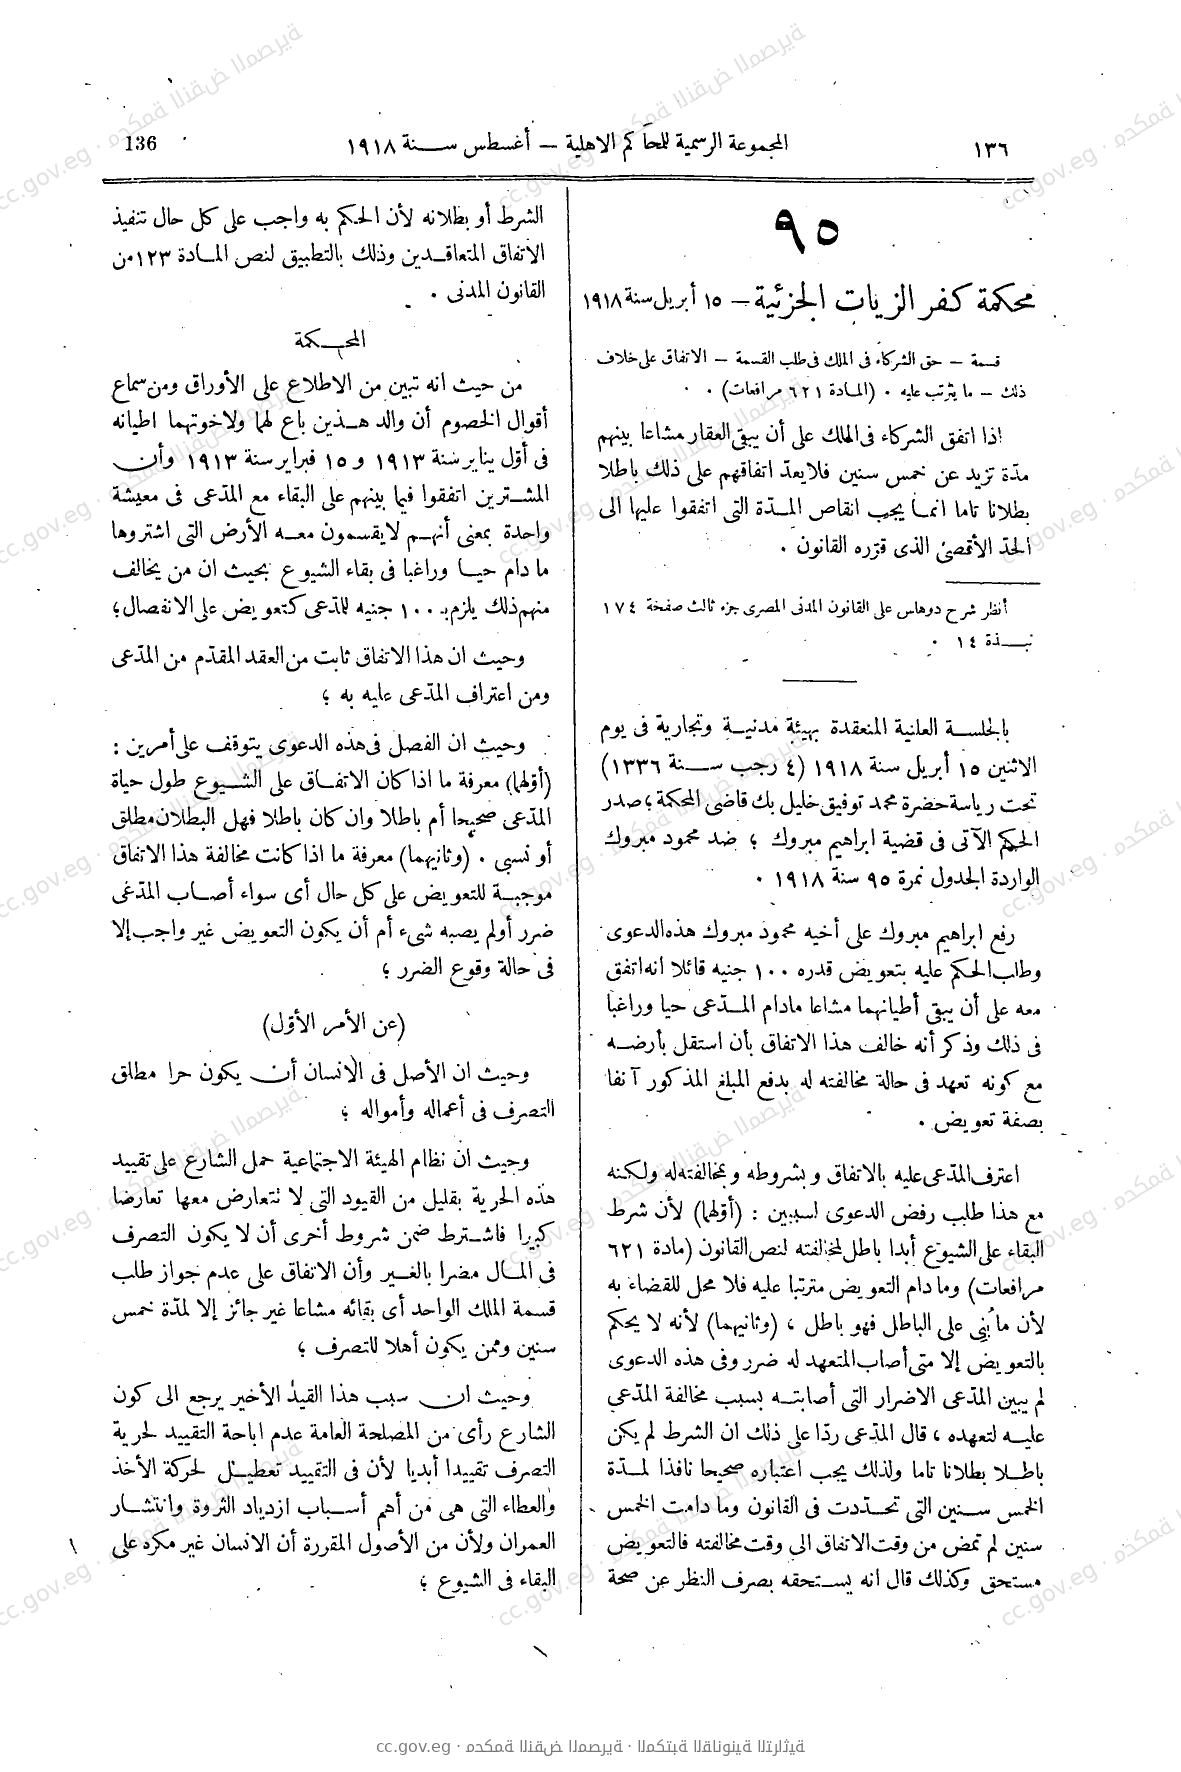 ١٣٦
المجموعة الرسمية للمحاكم الاهلية — أغسطس سنة ١٩١٨
136
٩٥
محكمة كفر الزيات الجزئية — ١٥ أبريل سنة ١٩١٨
قسمة — حق الشركاء فى الملك فى طلب القسمة — الاتفاق على خلاف
ذلك — ما يترتب عليه . (المادة ٦٢١ مرافعات) .
اذا اتفق الشركاء فى الملك على أن يبقى العقار مشاعا بينهم
مدّة تزيد عن خمس سنين فلا يعدّ اتفاقهم على ذلك باطلا
بطلانا تاما انما يجب انقاص المدّة التى اتفقوا عليها الى
الحدّ الأقصى الذى قرّره القانون .
أنظر شرح دوهلس على القانون المدنى المصرى جزء ثالث صفحة ١٧٤
نبذة ١٤ .
بالجلسة العلنية المنعقدة بهيئة مدنية وتجارية فى يوم
الاثنين ١٥ أبريل سنة ١٩١٨ (٤ رجب سنة ١٣٣٦)
تحت رياسة حضرة محمد توفيق خليل بك قاضى المحكمة ؛ صدر
الحكم الآتى فى قضية ابراهيم مبروك ؛ ضد محمود مبروك
الواردة الجدول نمرة ٩٥ سنة ١٩١٨ .
رفع ابراهيم مبروك على أخيه محمود مبروك هذه الدعوى
وطلب الحكم عليه بتعويض قدره ١٠٠ جنيه قائلا انه اتفق
معه على أن يبقى أطيانهما مشاعا مادام المدّعى حيا وراغبا
فى ذلك وذكر أنه خالف هذا الاتفاق بأن استقل بأرضه
مع كونه تعهد فى حالة مخالفته له بدفع المبلغ المذكور آنفا
بصفة تعويض .
اعترف المدّعى عليه بالاتفاق وبشروطه وبمخالفته له ولكنه
مع هذا طلب رفض الدعوى لسببين : (أوّلهما) لأن شرط
البقاء على الشيوع أبدا باطل لمخالفته لنص القانون (مادة ٦٢١
مرافعات) وما دام التعويض مترتبا عليه فلا محل للقضاء به
لأن ما بُنى على الباطل فهو باطل ، (وثانيهما) لأنه لا يحكم
بالتعويض إلا متى أصاب المتعهد له ضرر وفى هذه الدعوى
لم يبين المدّعى الاضرار التى أصابته بسبب مخالفة المدّعى
عليه لتعهده ، قال المدّعى ردّا على ذلك ان الشرط لم يكن
باطلا بطلانا تاما ولذلك يجب اعتباره صحيحا نافذا لمدّة
الخمس سنين التى تحدّدت فى القانون وما دامت الخمس
سنين لم تمض من وقت الاتفاق الى وقت مخالفته فالتعويض
مستحق وكذلك قال انه يستحقه بصرف النظر عن صحة
الشرط أو بطلانه لأن الحكم به واجب على كل حال تنفيذ
الاتفاق المتعاقدين وذلك بالتطبيق لنص المادة ١٢٣ من
القانون المدنى .
المحكمة
من حيث انه تبين من الاطلاع على الأوراق ومن سماع
أقوال الخصوم أن والد هذين باع لهما ولاخوتهما اطيانه
فى أوّل يناير سنة ١٩١٣ و ١٥ فبراير سنة ١٩١٣ وأن
المشترين اتفقوا فيما بينهم على البقاء مع المدّعى فى معيشة
واحدة بمعنى أنهم لا يقسمون معه الأرض التى اشتروها
ما دام حيا وراغبا فى بقاء الشيوع بحيث ان من يخالف
منهم ذلك يلزم بـ ١٠٠ جنيه للمدّعى كتعويض على الانفصال ؛
وحيث ان هذا الاتفاق ثابت من العقد المقدّم من المدّعى
ومن اعتراف المدّعى عليه به ؛
وحيث ان الفصل فى هذه الدعوى يتوقف على أمرين :
(أوّلهما) معرفة ما اذا كان الاتفاق على الشيوع طول حياة
المدّعى صحيحا أم باطلا وان كان باطلا فهل البطلان مطلق
أو نسبى . (وثانيهما) معرفة ما اذا كانت مخالفة هذا الاتفاق
موجبة للتعويض على كل حال أى سواء أصاب المدّعى
ضرر أو لم يصبه شىء أم أن يكون التعويض غير واجب إلا
فى حالة وقوع الضرر ؛
(عن الأمر الأوّل)
وحيث ان الأصل فى الانسان أن يكون حرا مطلق
التصرف فى أعماله وأمواله ؛
وحيث ان نظام الهيئة الاجتماعية حمل الشارع على تقييد
هذه الحرية بقليل من القيود التى لا تتعارض معها تعارضا
كبيرا فاشترط ضمن شروط أخرى أن لا يكون التصرف
فى المال مضرا بالغير وأن الاتفاق على عدم جواز طلب
قسمة الملك الواحد أى بقائه مشاعا غير جائز إلا لمدّة خمس
سنين وممن يكون أهلا للتصرف ؛
وحيث ان سبب هذا القيد الأخير يرجع الى كون
الشارع رأى من المصلحة العامة عدم اباحة التقييد لحرية
التصرف تقييدا أبديا لأن فى التقييد تعطيل لحركة الأخذ
والعطاء التى هى من أهم أسباب ازدياد الثروة وانتشار
العمران ولأن من الأصول المقررة أن الانسان غير مكره على
البقاء فى الشيوع ؛
cc.gov.eg · محكمة النقض المصرية · المكتبة القانونية التراثية